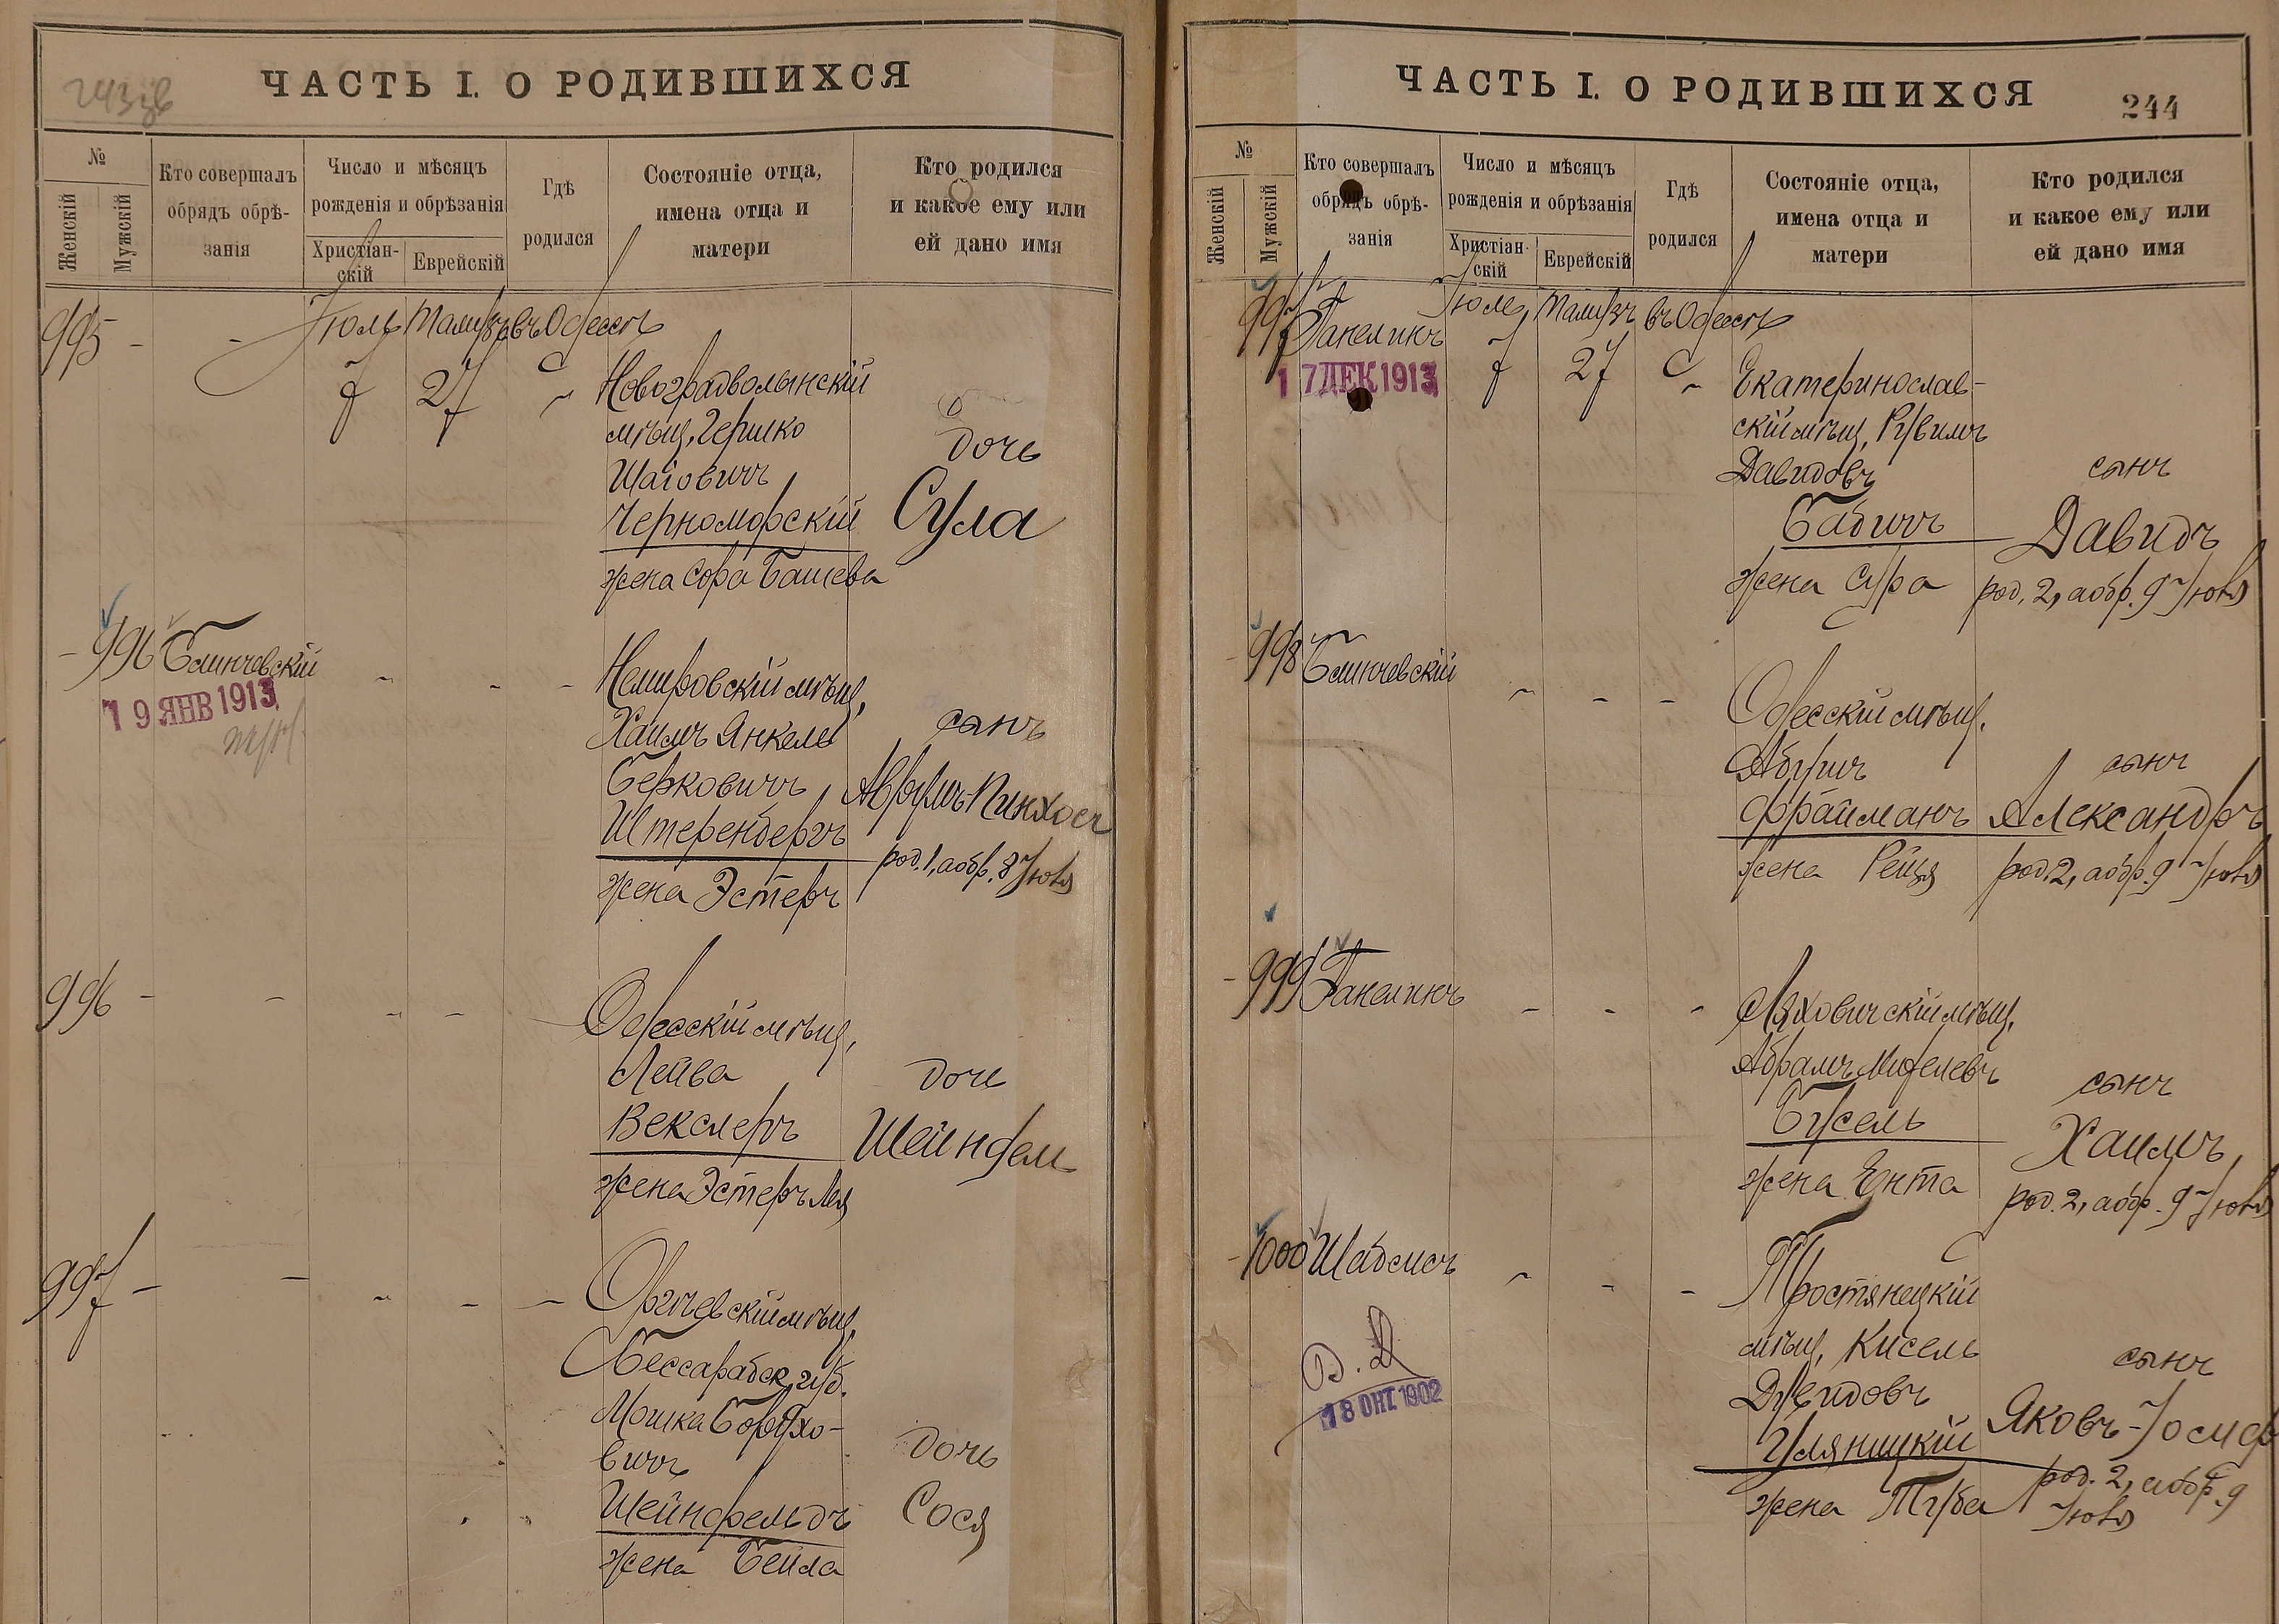 243 об
ЧАСТЬ I. О РОДИВШИХСЯ
№
Женскій
Мужскій
Кто совершалъ
обрядъ обрѣ-
занія
Число и мѣсяцъ
рожденія и обрѣзанія
Христіан-
скій
Еврейскій
Гдѣ
родился
Состояніе отца,
имена отца и
матери
Кто родился
и какое ему или
ей дано имя
995 - -
Іюль Тамузъ въ Одессѣ
7 27
Новоградволынскій
мѣщ. Гершко
Шаіовичъ
Черноморскій
жена Сора Башева
дочь
Сула
- 996 Блинчевскій
19 ЯНВ 1913
Немировскій мѣщ,
Хаимъ Янкель
Берковичъ
Штеренбергъ
жена Эстеръ
сынъ
Аврумъ-Пинхосъ
род. 1, а обр. 8 Іюля
996 - - - -
Одесскій мѣщ,
Лейва
Векслеръ
жена Эстеръ Лея
дочь
Шейндель
997 - - - - -
Оргѣевскій мѣщ,
Бессарабск. губ.
Мошка Борухо-
вичъ
Шейнфельдъ
жена Бейла
дочь
Сося
ЧАСТЬ I. О РОДИВШИХСЯ
244
№
Женскій
Мужскій
Кто совершалъ
обрядъ обрѣ-
занія
Число и мѣсяцъ
рожденія и обрѣзанія
Христіан-
скій
Еврейскій
Гдѣ
родился
Состояніе отца,
имена отца и
матери
Кто родился
и какое ему или
ей дано имя
997 Ганелинъ
17 ДЕК 1913
Іюль Тамузъ въ Одессѣ
7 27
Екатеринослав-
скій мѣщ, Рувимъ
Давидовъ
Бабичъ
жена Сура
сынъ
Давидъ
род. 2, а обр. 9 Іюля
- 998 Блинчевскій - - -
Одесскій мѣщ.
Абушъ
Фрайманъ
жена Рейзя
сынъ
Александръ
род. 2, а обр. 9 Іюля
- 999 Ганелинъ - - -
Ляховичскій мѣщ,
Абрамъ
Бусель
жена Ента
сынъ
Хаимъ
род. 2, а обр. 9 Іюля
- 1000 Шабсисъ - - -
18 ОКТ 1902
Тростянецкій
мѣщ, Кисель
Дувидовъ
Уляницкій
жена Туба
сынъ
Яковъ-Іосифъ
род. 2, а обр. 9
Іюля